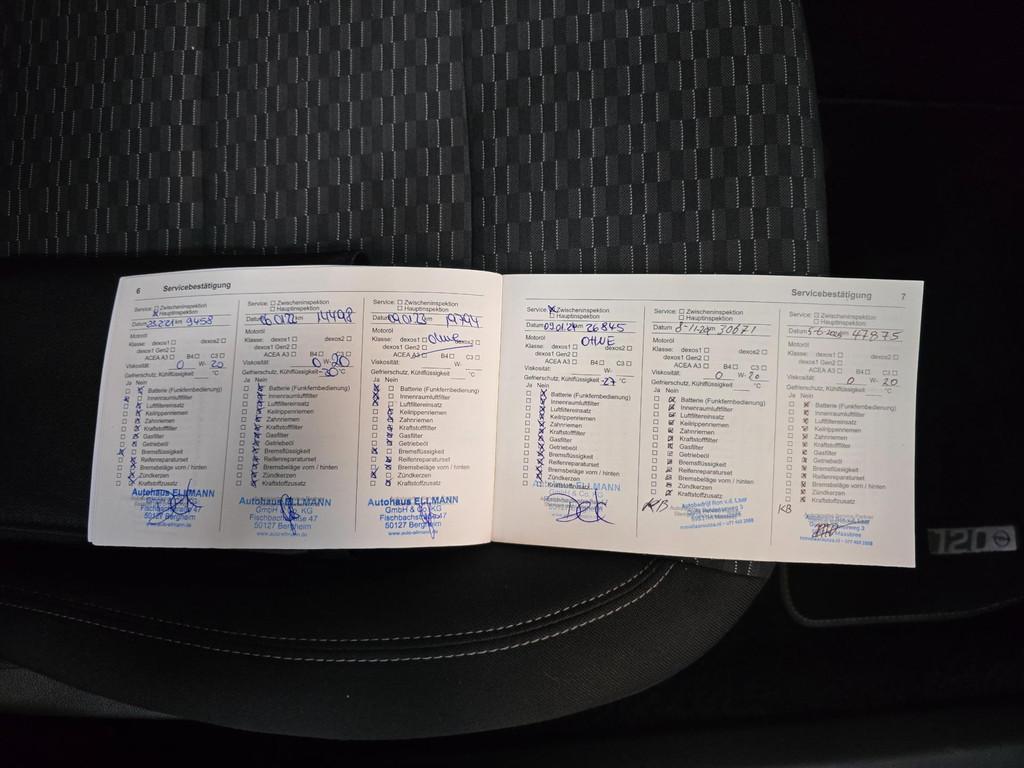 6 Servicebestätigung
Service: Zwischeninspektion
Hauptinspektion
km 9458
Motoröl
Klasse: dexos1 dexos2
dexos1 Gen2
ACEA A3 B4 C3
Viskosität: 0 W- 20
Gefrierschutz, Kühlflüssigkeit °C
Ja Nein
Batterie (Funkfernbedienung)
Innenraumluftfilter
Luftfiltereinsatz
Keilrippenriemen
Zahnriemen
Kraftstofffilter
Gasfilter
Getriebeöl
Bremsflüssigkeit
Reifenreparaturset
Bremsbeläge vorn / hinten
Zündkerzen
Kraftstoffzusatz
Autohaus ELLMANN
GmbH & Co. KG
Fischbachstraße 47
50127 Bergheim
Service: Zwischeninspektion
Hauptinspektion
14498
Motoröl
Klasse: dexos1 dexos2
dexos1 Gen2
ACEA A3 B4 C3
Viskosität: 0 W- 20
Gefrierschutz, Kühlflüssigkeit -30 °C
Ja Nein
Batterie (Funkfernbedienung)
Innenraumluftfilter
Luftfiltereinsatz
Keilrippenriemen
Zahnriemen
Kraftstofffilter
Gasfilter
Getriebeöl
Bremsflüssigkeit
Reifenreparaturset
Bremsbeläge vorn / hinten
Zündkerzen
Kraftstoffzusatz
Autohaus ELLMANN
GmbH & Co. KG
Fischbachstraße 47
50127 Bergheim
Service: Zwischeninspektion
Hauptinspektion
19794
Motoröl
Klasse: dexos1 ohne
dexos1 Gen2
ACEA A3 B4 C3
Viskosität: W-
Gefrierschutz, Kühlflüssigkeit °C
Ja Nein
Batterie (Funkfernbedienung)
Innenraumluftfilter
Luftfiltereinsatz
Keilrippenriemen
Zahnriemen
Kraftstofffilter
Gasfilter
Getriebeöl
Bremsflüssigkeit
Reifenreparaturset
Bremsbeläge vorn / hinten
Zündkerzen
Kraftstoffzusatz
Autohaus ELLMANN
GmbH & Co. KG
Fischbachstraße 47
50127 Bergheim
Servicebestätigung 7
Service: Zwischeninspektion
Hauptinspektion
Datum 09.01.24 26845
Motoröl OHNE
Klasse: dexos1 dexos2
dexos1 Gen2
ACEA A3 B4 C3
Viskosität: W-
Gefrierschutz, Kühlflüssigkeit -27 °C
Ja Nein
Batterie (Funkfernbedienung)
Innenraumluftfilter
Luftfiltereinsatz
Keilrippenriemen
Zahnriemen
Kraftstofffilter
Gasfilter
Getriebeöl
Bremsflüssigkeit
Reifenreparaturset
Bremsbeläge vorn / hinten
Zündkerzen
Kraftstoffzusatz
Service: Zwischeninspektion
Hauptinspektion
Datum 30671
Motoröl
Klasse: dexos1 dexos2
dexos1 Gen2
ACEA A3 B4 C3
Viskosität: 0 W- 20
Gefrierschutz, Kühlflüssigkeit °C
Ja Nein
Batterie (Funkfernbedienung)
Innenraumluftfilter
Luftfiltereinsatz
Keilrippenriemen
Zahnriemen
Kraftstofffilter
Gasfilter
Getriebeöl
Bremsflüssigkeit
Reifenreparaturset
Bremsbeläge vorn / hinten
Zündkerzen
Kraftstoffzusatz
KB
Autobedrijf Ron v.d. Laar
Service: Zwischeninspektion
Hauptinspektion
Datum 47875
Motoröl
Klasse: dexos1 dexos2
dexos1 Gen2
ACEA A3 B4 C3
Viskosität: 0 W- 20
Gefrierschutz, Kühlflüssigkeit °C
Ja Nein
Batterie (Funkfernbedienung)
Innenraumluftfilter
Luftfiltereinsatz
Keilrippenriemen
Zahnriemen
Kraftstofffilter
Gasfilter
Getriebeöl
Bremsflüssigkeit
Reifenreparaturset
Bremsbeläge vorn / hinten
Zündkerzen
Kraftstoffzusatz
KB
120